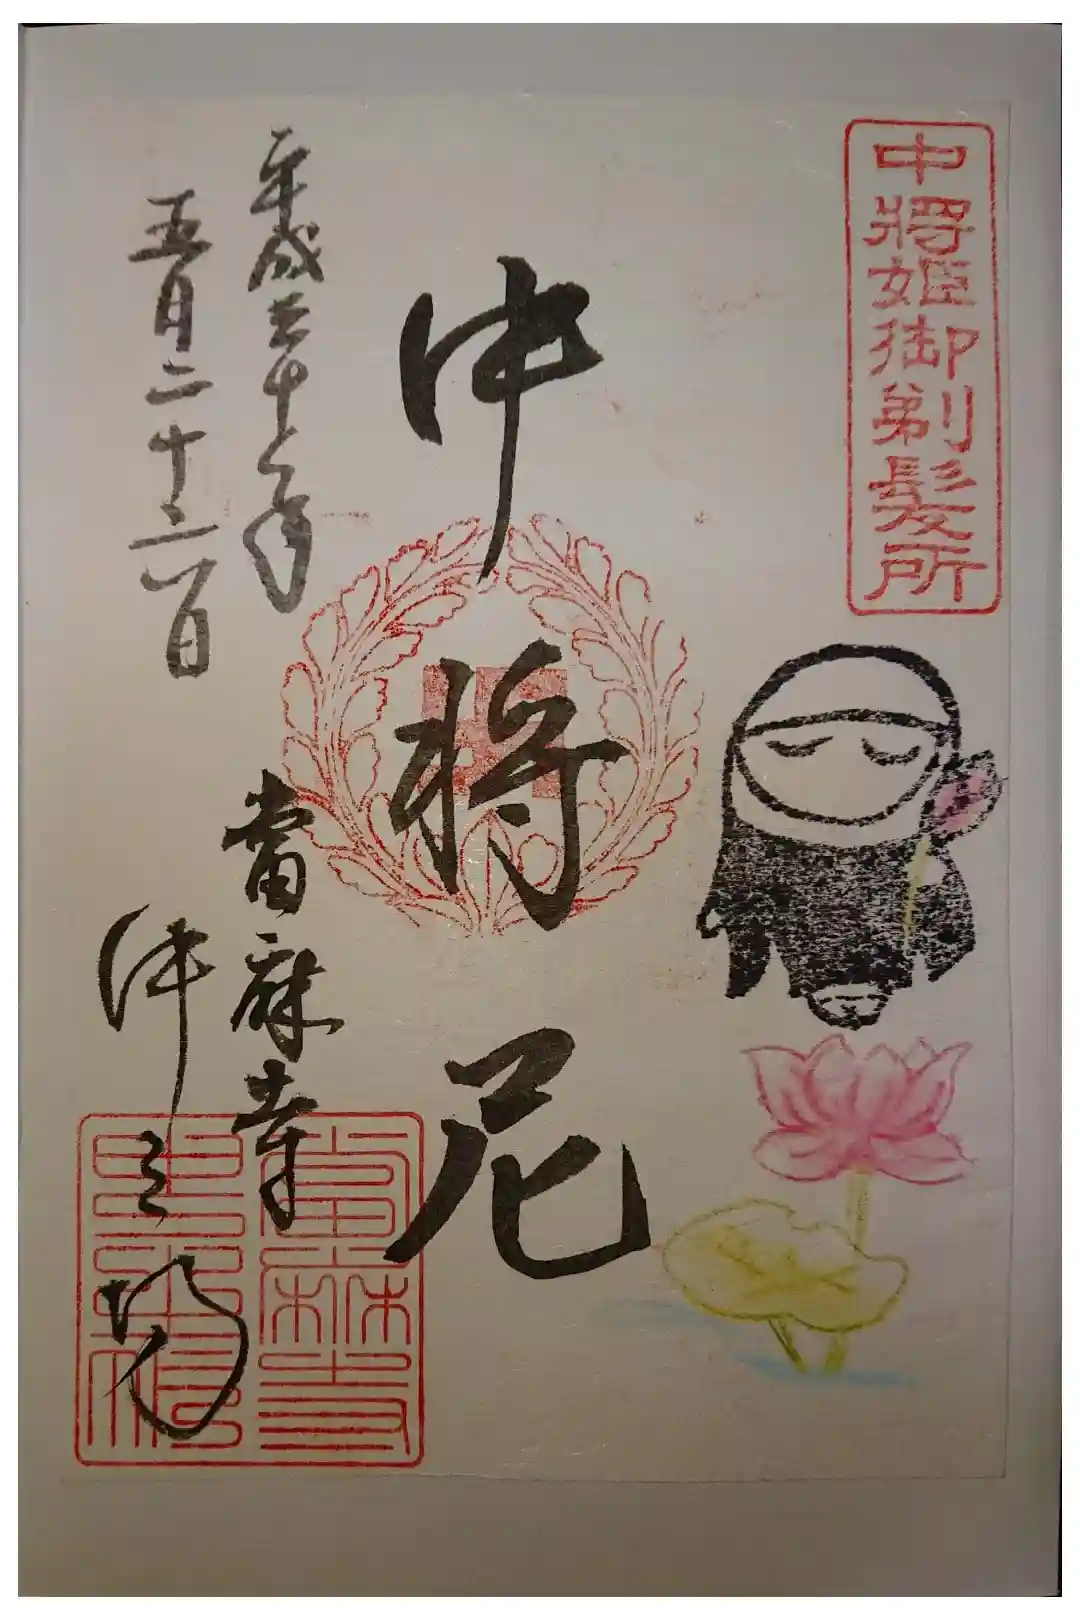 中將姫御剃髪所
中将尼
平成三十年
五月二十二日
當麻寺
中之坊
當麻寺